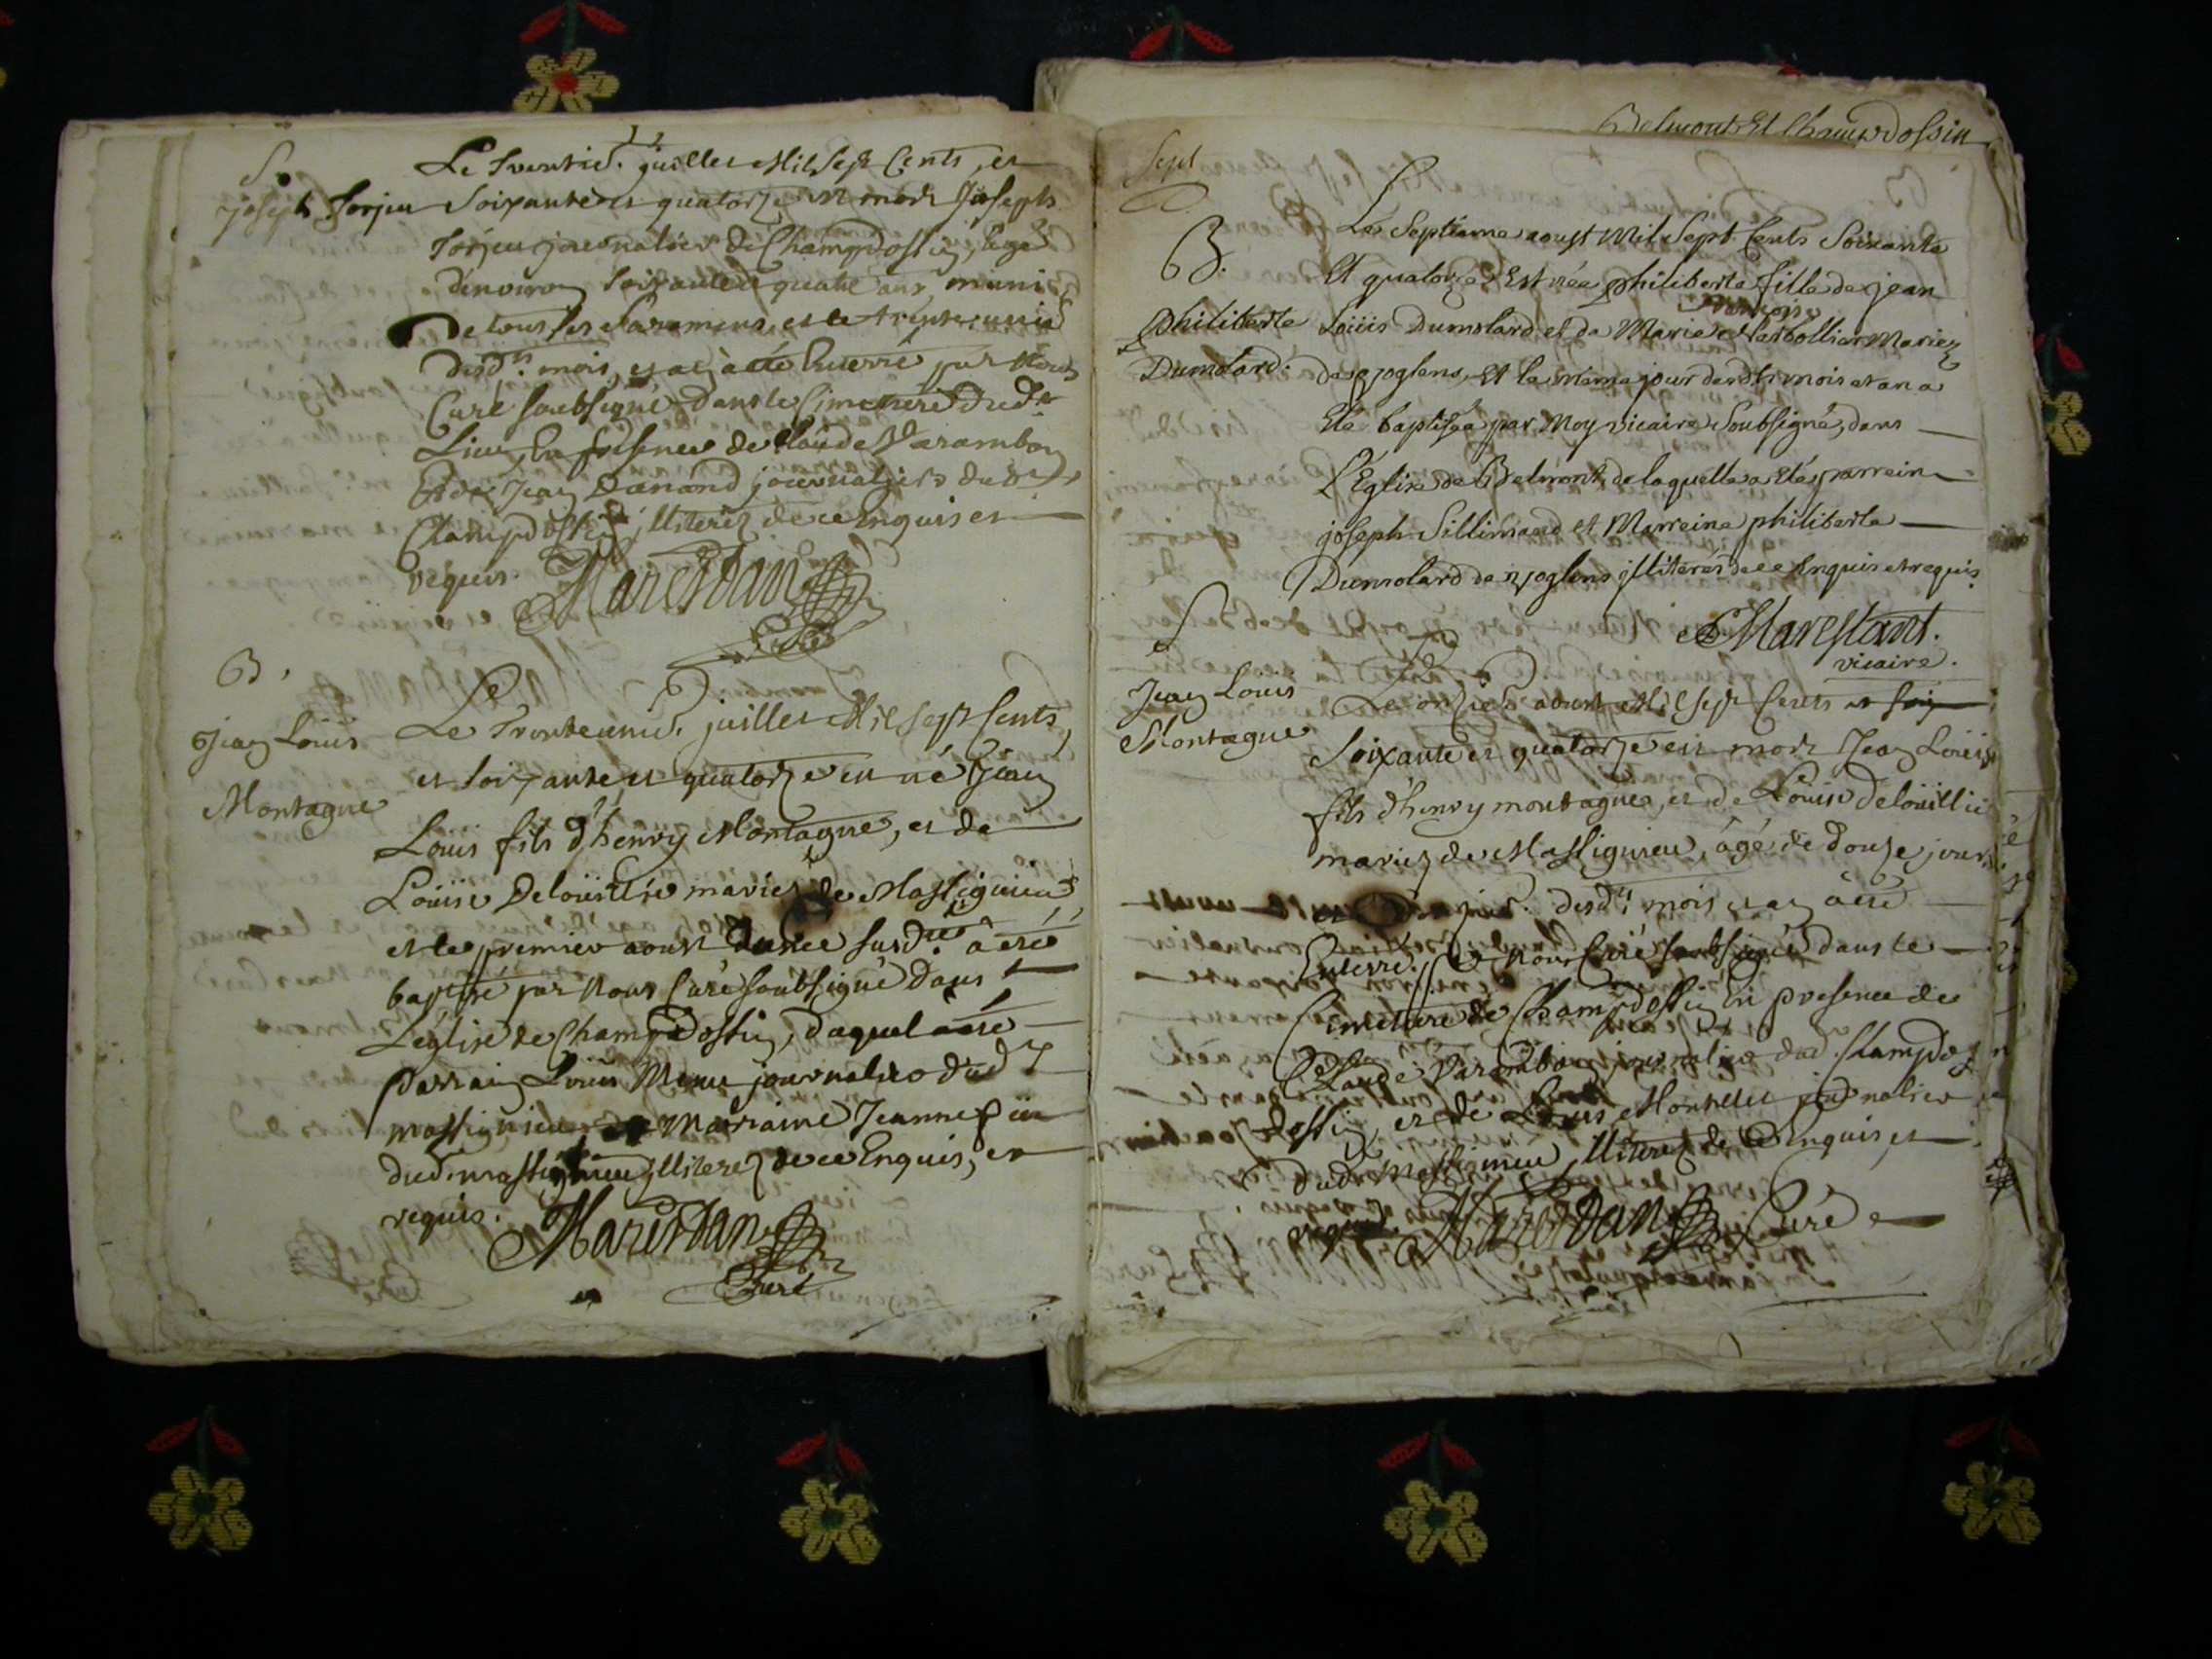 S.
Joseph Torjeu
Le trentie. juillet Mil Sept Cents, et
Soixante et quatorze est mort Joseph
Torjeu journalier de Champdossin, agé
d'environ soixante et quatre ans muni
De tous les Sacremens, et le trente unie
desdts. mois, et an, a eté Enterré par Nous
Curé soubsigné, dans le Cimetière dudt.
Lieu, En presence de Claude Varambon
Et de Jean Danand journaliers dudt.
Champdossin illiterez de ce Enquis et
requis. Marestan
Curé
B.
Jean Louis
Montagne
Le Trente unie. juillet Mil Sept Cents,
et soixante et quatorze est né Jean
Louis fils d'henry Montagne, et de
Louise Delouillie mariez de Massignieu
et le premier aoust susd. a eté
baptisé par Nous Curé soubsigné dans
L'église de Champdossin, duquel a eté
parrain Louis journalier dud.
massignieu et Marraine Jeanne
dud. massignieu illiterez de ce Enquis, et
requis. Marestan
Curé
Belmont Et Champdossin
Sept
B.
Philiberte
Dumolard.
Le Septieme aoust Mil Sept Cents Soixante
Et quatorze Est née philiberte fille de jean
françoise
Loüis Dumolard et de Marie Mariez
de joglens, Et le même jour desdts. mois et an a
Eté baptisée par Moy vicaire Soubsigné, dans
L'Eglise de Belmont, de laquelle a Eté parrein
joseph Sillimand et Marreine philiberte
Dumolard de joglens illiterés de ce Enquis et requis.
Marestant.
vicaire.
S
Jean Louis
Montagne
Le onzie. aoust Mil Sept Cents et soix
Soixante et quatorze est mort Jean Louis
fils d'henry montagne, et de Louise Delouillie
mariez de Massignieu, âgé de Douze jours
et desdts. mois et an a eté
Enterré par Nous Curé soubsigné dans le
Cimetiere de Champdossin En presence de
Claude Varambon journalier dud. Champ
dossin, et de Louis journalier
dud. Massignieu illiterez de ce Enquis, et
requis. Marestan Curé